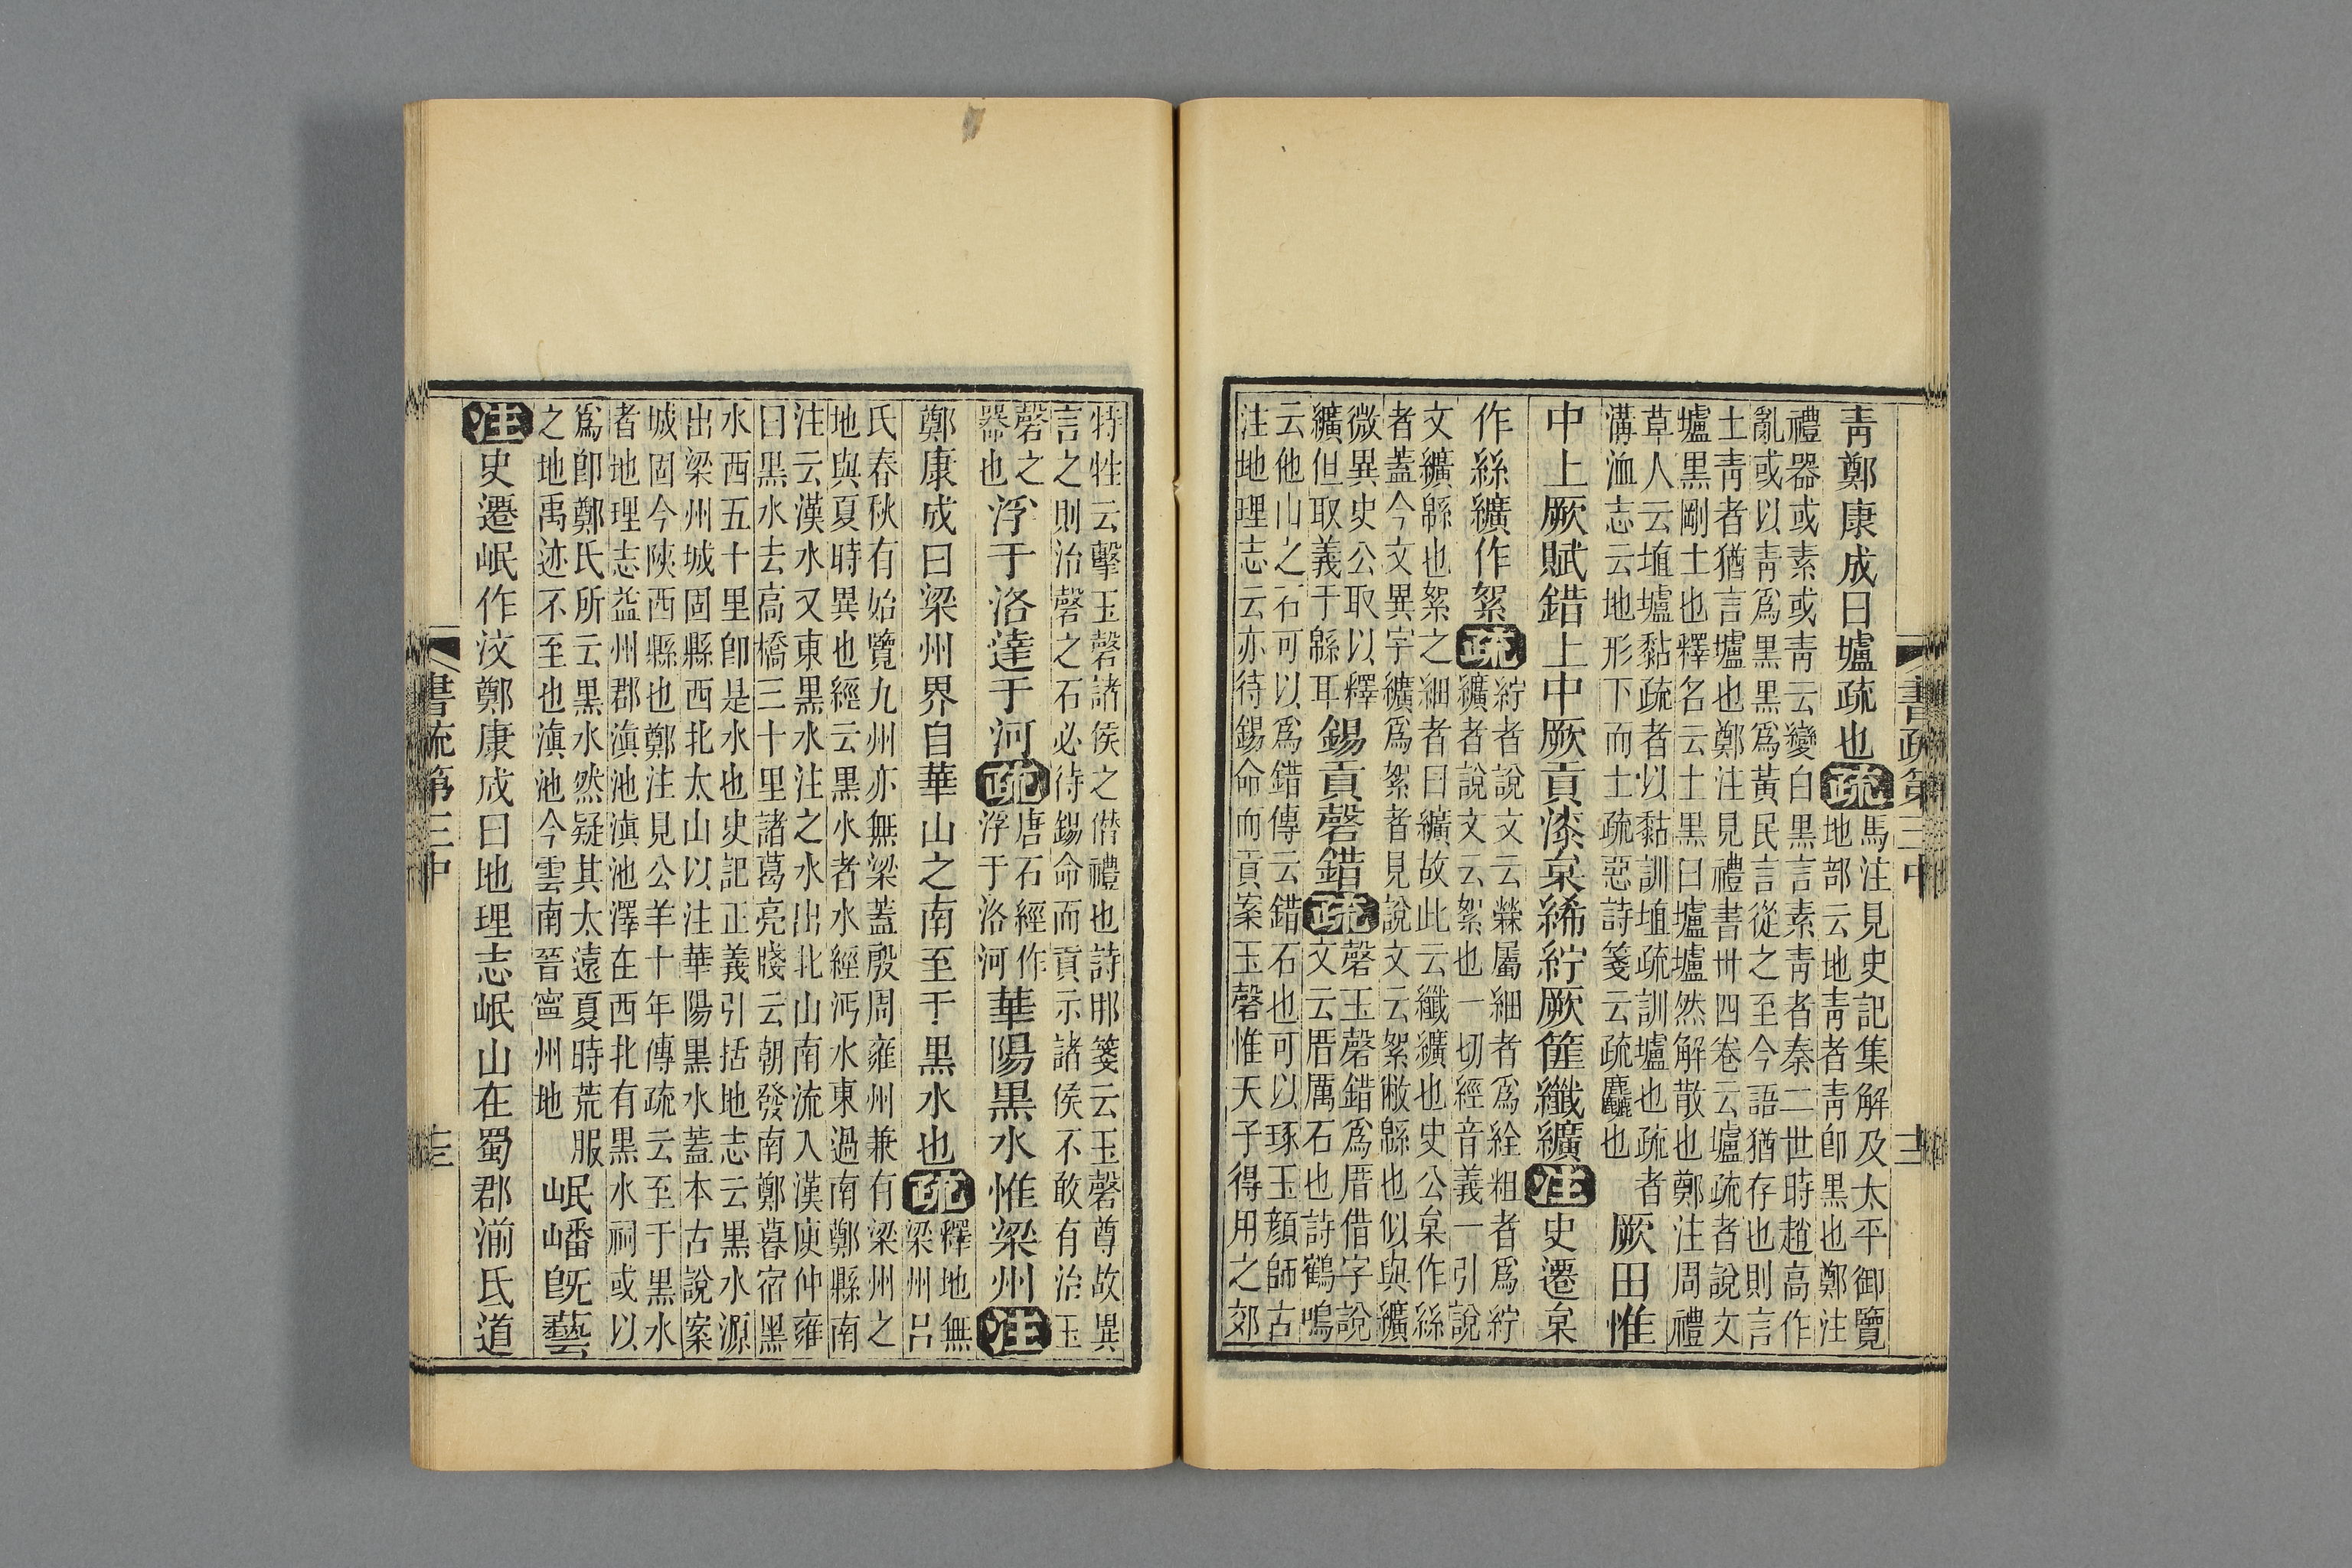 書疏第三中 十二
青鄭康成曰壚疏也疏馬注見史記集解及太平御覽
地部云地青者青卽黑也鄭注
禮器或素或青云變白黑言素青者秦二世時趙高作
亂或以青爲黑黑爲黃民言從之至今語猶存也則言
土青者猶言壚也鄭注見禮書卅四卷云壚疏者說文
壚黑剛土也釋名云土黑曰壚壚然解散也鄭注周禮
草人云埴壚黏疏者以黏訓埴疏訓壚也疏者
溝洫志云地形下而土疏惡詩箋云疏麤也厥田惟
中上厥賦錯上中厥貢漆枲絺紵厥篚纖纊注史遷枲
作絲纊作絮疏紵者說文云檾屬細者爲絟粗者爲紵
纊者說文云絮也一切經音義一引說
文纊緜也絮之細者曰纊故此云纖纊也史公枲作絲
者蓋今文異字纊爲絮者見說文云絮敝緜也似與纊
微異史公取以釋
纊但取義于緜耳錫貢磬錯疏磬玉磬錯爲厝借字說
文云厝厲石也詩鶴鳴
云他山之石可以爲錯傳云錯石也可以琢玉顏師古
注地理志云亦待錫命而貢案玉磬惟天子得用之郊
特牲云擊玉磬諸侯之僭禮也詩郍箋云玉磬尊故異
言之則治磬之石必待錫命而貢示諸侯不敢有治玉
磬之
器也浮于洛達于河疏唐石經作
浮于洛河華陽黑水惟梁州注
鄭康成曰梁州界自華山之南至于黑水也疏釋地無
梁州呂
氏春秋有始覽九州亦無梁蓋殷周雍州兼有梁州之
地與夏時異也經云黑水者水經沔水東過南鄭縣南
注云漢水又東黑水注之水出北山南流入漢庾仲雍
曰黑水去高橋三十里諸葛亮牋云朝發南鄭暮宿黑
水西五十里卽是水也史記正義引括地志云黑水源
出梁州城固縣西北太山以注華陽黑水蓋本古說案
城固今陝西縣也鄭注見公羊十年傳疏云至于黑水
者地理志益州郡滇池滇池澤在西北有黑水祠或以
爲卽鄭氏所云黑水然疑其太遠夏時荒服
之地禹迹不至也滇池今雲南晉寧州地岷嶓旣藝
注史遷岷作汶鄭康成曰地理志岷山在蜀郡湔氐道
書疏第三中 十三